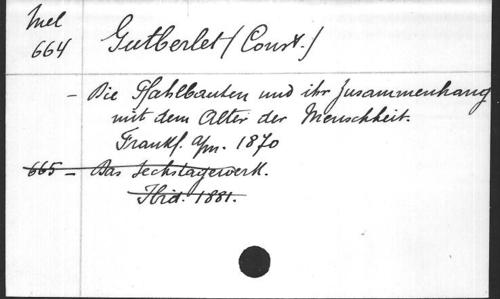 Mel
664
Gutberlet (Const.)
- Die Pfahlbauten und ihr Zusammenhang
mit dem Alter der Menschheit.
Frankf. a/m. 1870
665 - Das Sechstagewerk.
Ibid. 1881.